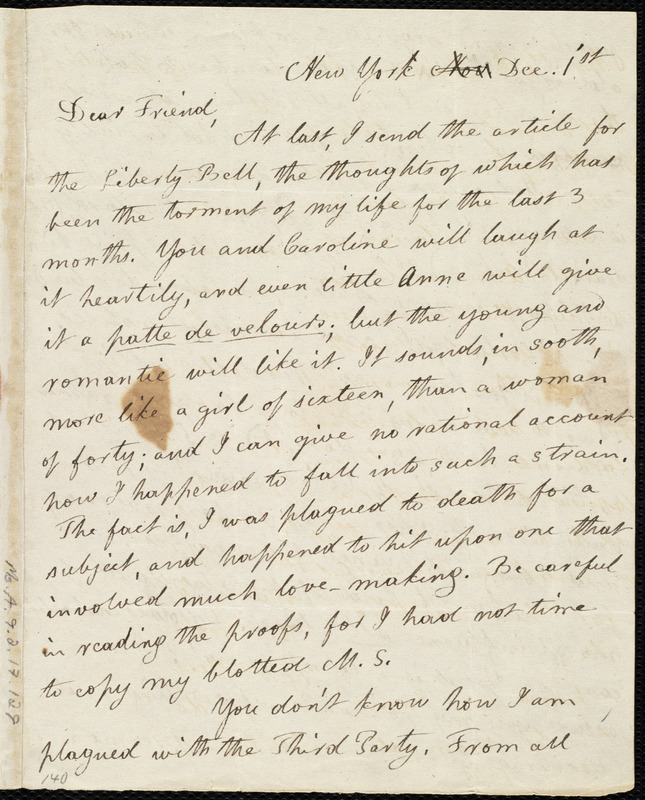 New York Nov Dec. 1st
Dear Friend,
At last, I send the article for
the Liberty Bell, the thoughts of which has
been the torment of my life for the last 3
months. You and Caroline will laugh at
it heartily, and even little Anne will give
it a patte de velours; but the young and
romantic will like it. It sounds, in sooth,
more like a girl of sixteen, than a woman
of forty; and I can give no rational account
how I happened to fall into such a strain.
The fact is, I was plagued to death for a
subject, and happened to hit upon one that
involved much love-making. Be careful
in reading the proofs, for I had not time
to copy my blotted M.S.
You don't know how I am
plagued with the Third Party. From all
140
Ms.A.9.2.17.129